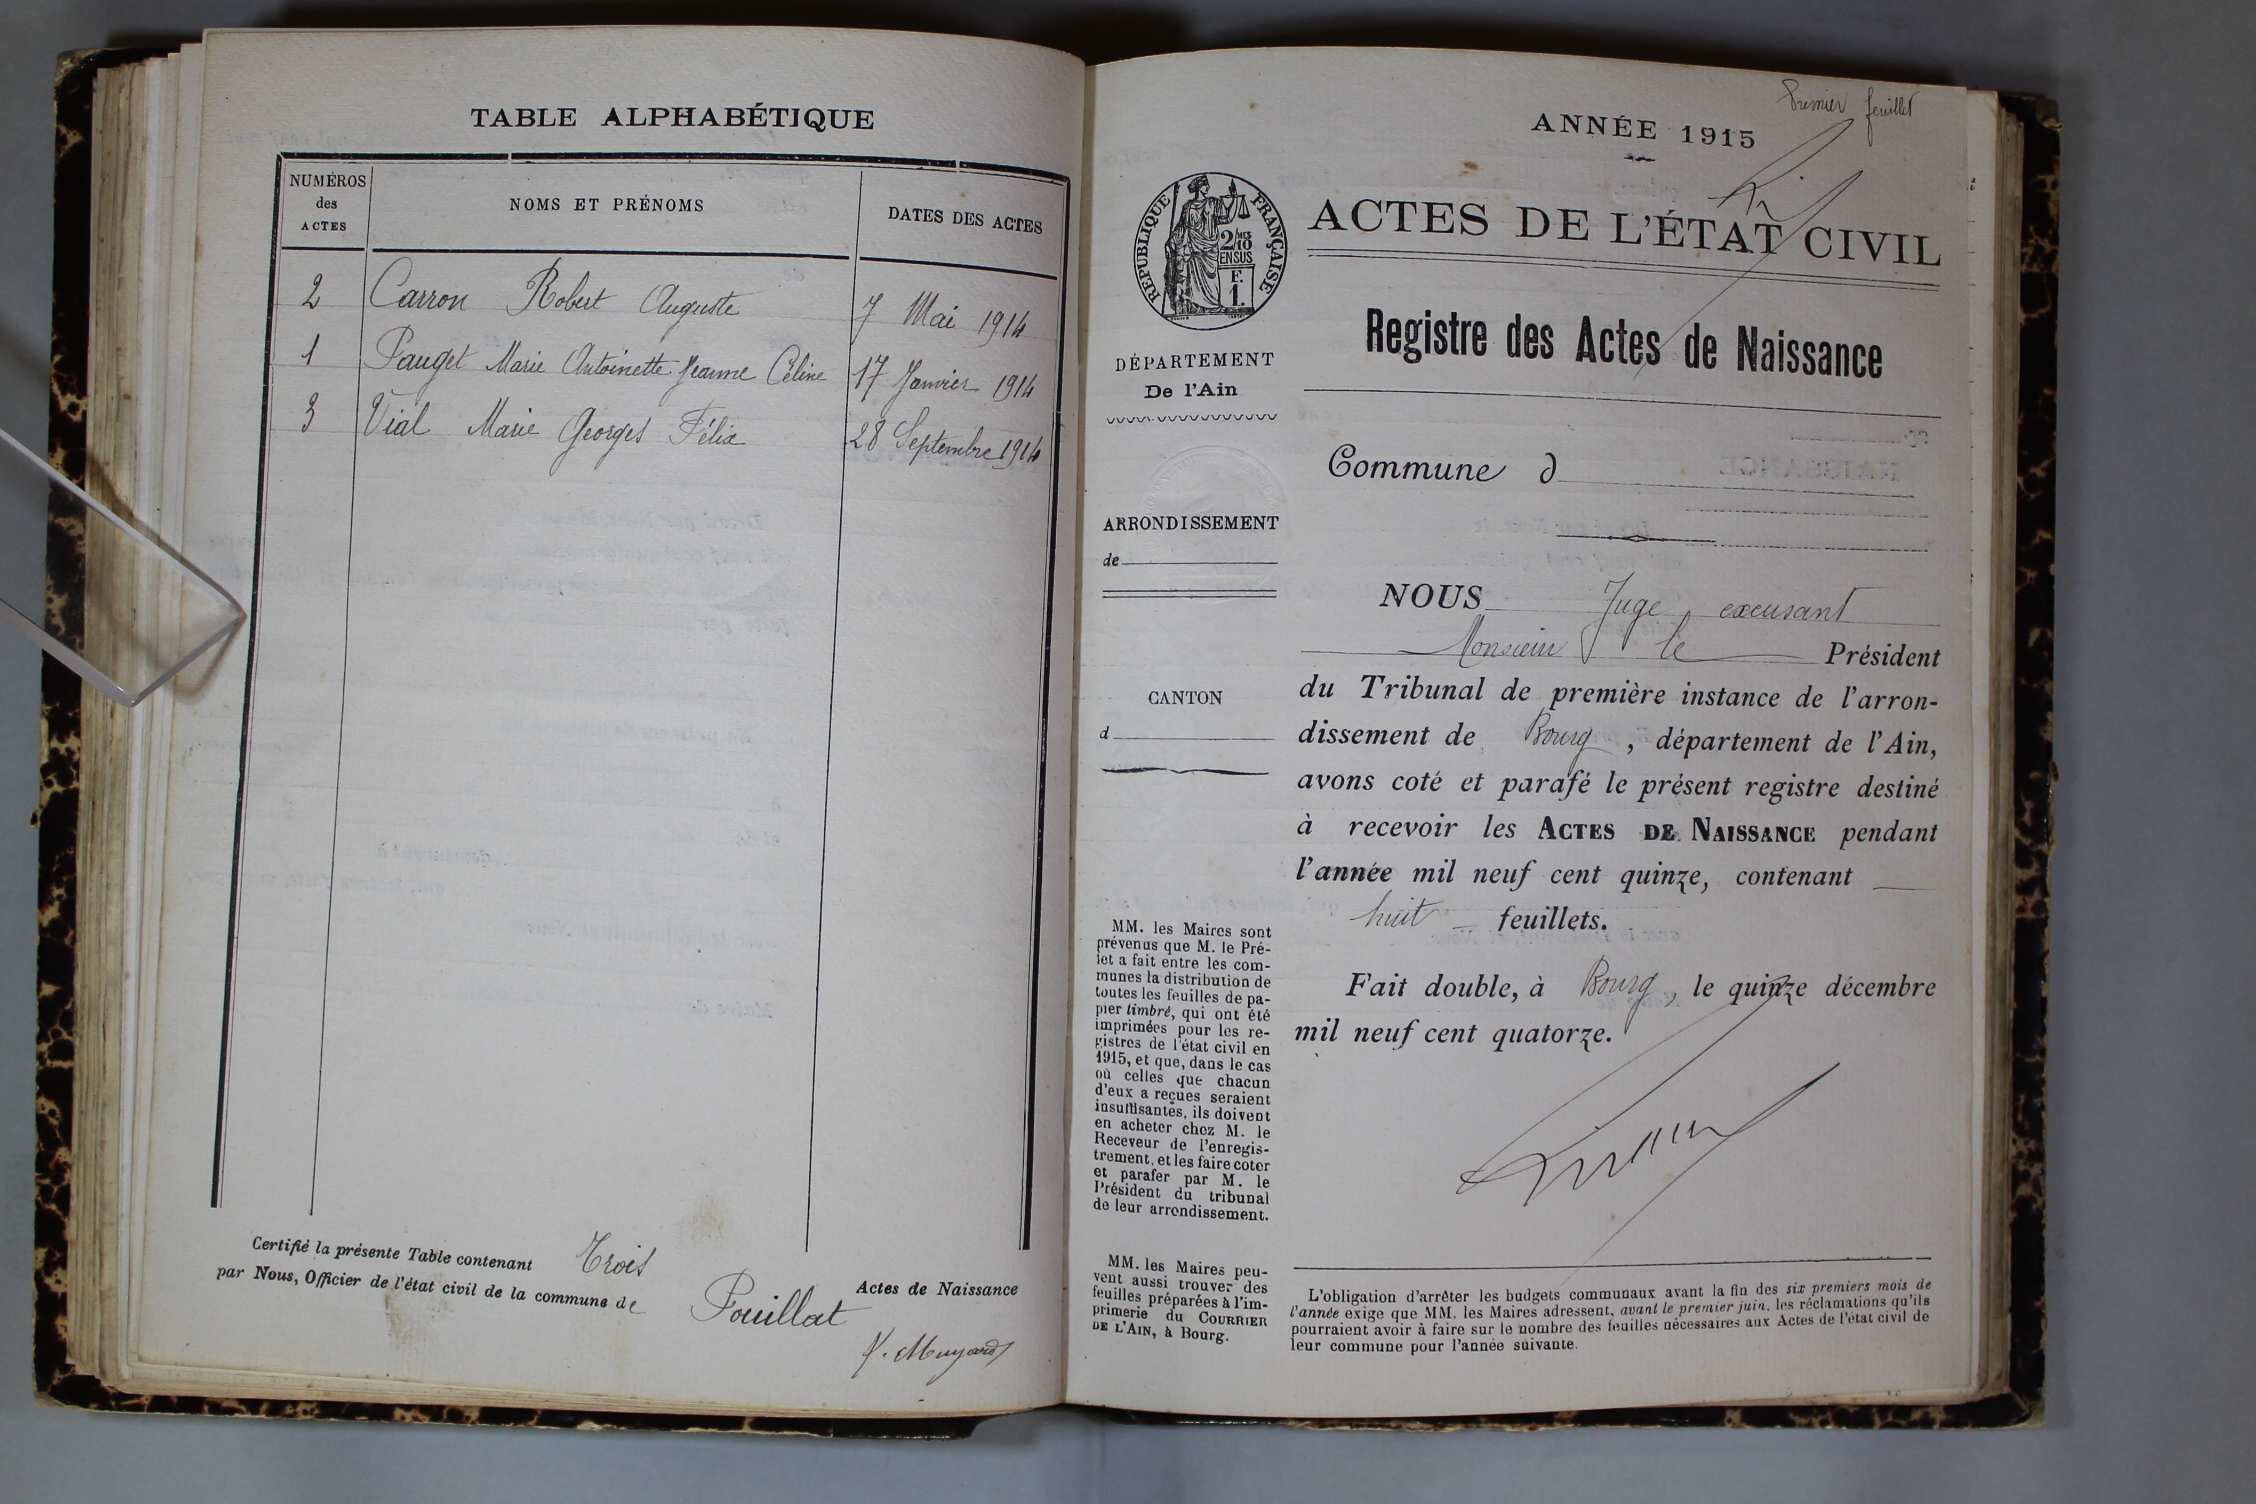 TABLE ALPHABÉTIQUE
NUMÉROS
des
ACTES
NOMS ET PRÉNOMS
DATES DES ACTES
2 Carron Robert Auguste 7 Mai 1914
1 Pauget Marie Antoinette Jeanne Céline 17 Janvier 1914
3 Vial Marie Georges Félix 28 Septembre 1914
Certifié la présente Table contenant Trois Actes de Naissance
par Nous, Officier de l'état civil de la commune de Pouillat
Premier feuillet
ANNÉE 1915
ACTES DE L'ÉTAT CIVIL
Registre des Actes de Naissance
RÉPUBLIQUE FRANÇAISE
2/10 MES
EN SUS
F.
1.
DÉPARTEMENT
De l'Ain
ARRONDISSEMENT
de
CANTON
d
MM. les Maires sont
prévenus que M. le Pré-
fet a fait entre les com-
munes la distribution de
toutes les feuilles de pa-
pier timbré, qui ont été
imprimées pour les re-
gistres de l'état civil en
1915, et que, dans le cas
où celles que chacun
d'eux a reçues seraient
insuffisantes, ils doivent
en acheter chez M. le
Receveur de l'enregis-
trement, et les faire coter
et parafer par M. le
Président du tribunal
de leur arrondissement.
MM. les Maires peu-
vent aussi trouver des
feuilles préparées à l'im-
primerie du COURRIER
DE L'AIN, à Bourg.
Commune d
NOUS Juge excusant
Monsieur le Président
du Tribunal de première instance de l'arron-
dissement de Bourg, département de l'Ain,
avons coté et parafé le présent registre destiné
à recevoir les ACTES DE NAISSANCE pendant
l'année mil neuf cent quinze, contenant
huit feuillets.
Fait double, à Bourg, le quinze décembre
mil neuf cent quatorze.
L'obligation d'arrêter les budgets communaux avant la fin des six premiers mois de
l'année exige que MM. les Maires adressent, avant le premier juin, les réclamations qu'ils
pourraient avoir à faire sur le nombre des feuilles nécessaires aux Actes de l'état civil de
leur commune pour l'année suivante.